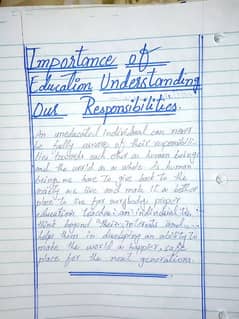 Importance of
Education Understanding
Our Responsibilities.
An uneducated individual can never
be fully aware of their responsibili-
ties towards each other as human beings
and the world as a whole. As human
being we have to give back to the
society we live and make it a better
place to live for everybody. proper
education teaches an individual to
think beyond their interests and
help them in developing an ability to
make the world a happier, safe
place for the next generations.